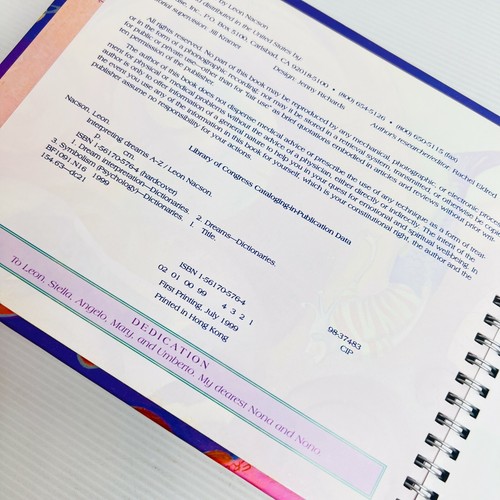 by Leon Nacson
distributed in the United States by
House, Inc., P.O. Box 5100, Carlsbad, CA 92018-5100 • (800) 654-5126 • (800) 650-5115 (fax)
supervision: Jill Kramer Design: Jenny Richards Author's researcher/editor: Rachel Eldred
All rights reserved. No part of this book may be reproduced by any mechanical, photographic, or electronic
or in the form of a phonographic recording; nor may it be stored in a retrieval system, transmitted, or otherwise be copied
for public or private use—other than for "fair use" as brief quotations embodied in articles and reviews without prior
ten permission of the publisher.
The author of this book does not dispense medical advice or prescribe the use of any technique as a form of treat-
ment for physical or medical problems without the advice of a physician, either directly or indirectly. The intent of the
author is only to offer information of a general nature to help you in your quest for emotional and spiritual well-being. In
the event you use any of the information in this book for yourself, which is your constitutional right, the author and the
publisher assume no responsibility for your actions.
Library of Congress Cataloging-in-Publication Data
Nacson, Leon.
Interpreting dreams A-Z / Leon Nacson.
p. cm.
ISBN 1-56170-576-4 (hardcover)
1. Dream interpretation—Dictionaries. 2. Dreams—Dictionaries.
3. Symbolism (Psychology)—Dictionaries. I. Title.
BF1091.N16 1999
154.6'3—dc21
98-37483
CIP
ISBN 1-56170-576-4
02 01 00 99 4 3 2 1
First Printing, July 1999
Printed in Hong Kong
DEDICATION
To Leon, Stella, Angelo, Mary, and Umberto. My dearest Nona and Nono